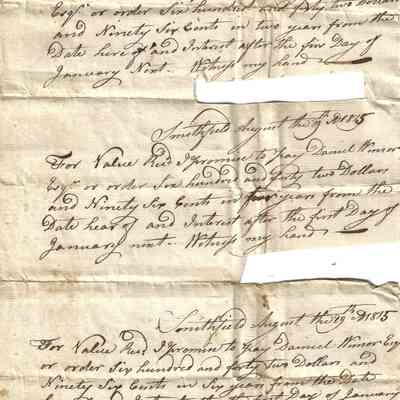 Esqr or order Six hundred and forty two Dollars
and Ninety Six Cents in two years from the
Date here of and Interest after the firs Day of
January Next - Witness my hand
Smithfield August the 19th AD 1815
For Value Recd I Promise to Pay Daniel Winsor
Esqr or order Six hundred and forty two Dollars
and Ninety Six Cents in four years from the
Date hear of and Interest after the first Day of
January next - Witness my hand
Smithfield August the 19th AD 1815
For Value Recd I Promise to Pay Daniel Winsor Esqr
or order Six hundred and forty two Dollars and
Ninety Six Cents in Six years from the Date
first Day of January